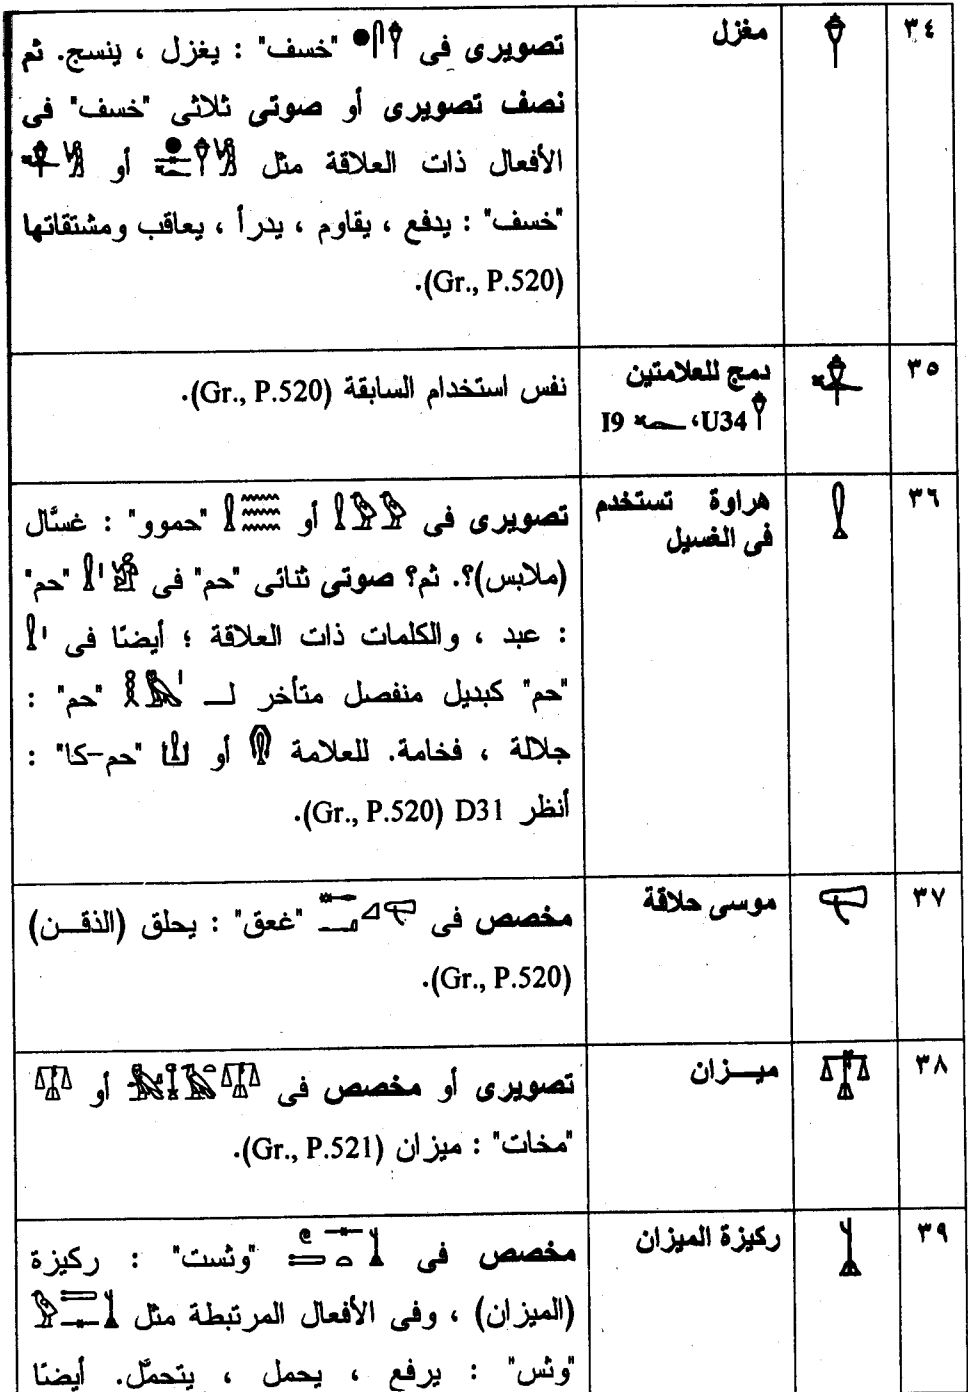 ٣٤ مغزل تصويرى فى "خسف" : يغزل ، ينسج. ثم
نصف تصويرى أو صوتى ثلاثى "خسف" فى
الأفعال ذات العلاقة مثل أو
"خسف" : يدفع ، يقاوم ، يدرأ ، يعاقب ومشتقاتها
(Gr., P.520).
٣٥ دمج للعلامتين نفس استخدام السابقة (Gr., P.520).
U34، I9
٣٦ هراوة تستخدم تصويرى فى أو "حموو" : غسَّال
فى الغسيل (ملابس)؟. ثم؟ صوتى ثنائى "حم" فى "حم"
: عبد ، والكلمات ذات العلاقة ؛ أيضًا فى
"حم" كبديل منفصل متأخر لـــ "حم" :
جلالة ، فخامة. للعلامة أو "حم-كا" :
أنظر D31 (Gr., P.520).
٣٧ موسى حلاقة مخصص فى "غعق" : يحلق (الذقــن)
(Gr., P.520).
٣٨ ميــزان تصويرى أو مخصص فى أو
"مخات" : ميزان (Gr., P.521).
٣٩ ركيزة الميزان مخصص فى "وثست" : ركيزة
(الميزان) ، وفى الأفعال المرتبطة مثل
"وثس" : يرفع ، يحمل ، يتحمَّل. أيضًا